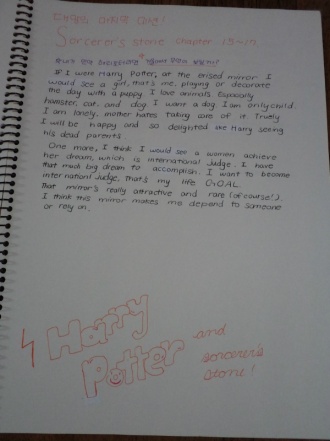 Sorcerer's stone chapter 15-17
If I were Harry Potter, at the erised mirror I
would see a girl, that's me, playing or decorate
the day with a puppy. I love animals. Especially
hamster, cat, and dog. I want a dog. I am only child.
I am lonely. mother hates taking care of it. Truely
I will be happy and so delighted like Harry seeing
his dead parents.
One more, I think I would see a women achieve
her dream, which is international Judge. I have
that much big dream to accomplish. I want to become
internationl Judge. That's my life GOAL.
That mirror's really attractive and rare (of course!).
I think this mirror makes me depend to someone
or rely on.
Harry
Potter
and
sorcerer's
stone!